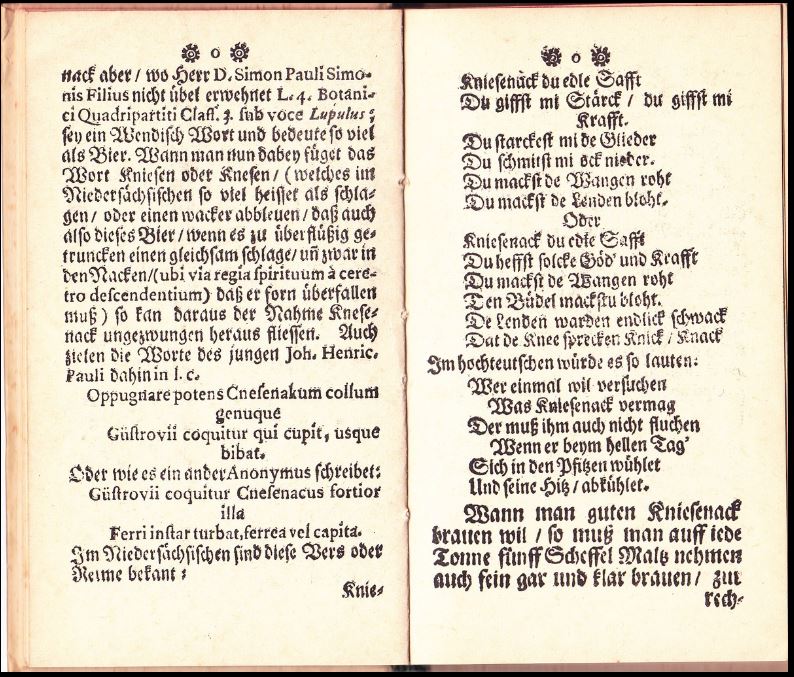 o
nack aber / wo Herr D. Simon Pauli Simo-
nis Filius nicht übel erwehnet L. 4. Botani-
ci Quadripartiti Claſſ. 3. ſub voce Lupulus ;
ſey ein Wendiſch Wort und bedeute ſo viel
als Bier. Wann man nun dabey füget das
Wort Kniesen oder Kneſen / (welches im
Niederſächſiſchen ſo viel heiſſet als ſchla-
gen / oder einen wacker abbleuen / daß auch
alſo dieſes Bier / wenn es zu überflüßig ge-
truncken einen gleichſam ſchlage / uñ zwar in
den Nacken / (ubi via regia ſpirituum à cere-
tro deſcendentium) daß er forn überfallen
muß ) ſo kan daraus der Nahme Kneſe-
nack ungezwungen heraus flieſſen. Auch
zielen die Worte des jungen Joh. Henric.
Pauli dahin in l. c.
Oppugnare potens Cneſenakum collum
genuque
Güſtrovii coquitur qui cupit, usque
bibat.
Oder wie es ein ander Anonymus ſchreibet:
Güſtrovii coquitur Cneſenacus fortior
illa
Ferri inſtar turbat, ferrea vel capita.
Im Niederſächſiſchen ſind dieſe Vers oder
Reime bekant :
Knie-
o
Knieſenack du edle Safft
Du giffſt mi Stärck / du giffſt mi
Krafft.
Du ſtarckeſt mi de Glieder
Du ſchmitſt mi ock nieder.
Du mackſt de Wangen roht
Du mackſt de Lenden bloht.
Oder
Knieſenack du edle Safft
Du heffſt ſolcke Göd' und Krafft
Du mackſt de Wangen roht
Den Büdel mackſtu bloht.
De Lenden warden endlick ſchwack
Dat de Knee ſprecken Knick / Knack
Im hochteutſchen würde es ſo lauten:
Wer einmal wil verſuchen
Was Knieſenack vermag
Der muß ihm auch nicht fluchen
Wenn er beym hellen Tag'
Sich in den Pfitzen wühlet
Und ſeine Hitz / abkühlet.
Wann man guten Knieſenack
brauen wil / ſo muß man auff iede
Tonne fünff Scheffel Maltz nehmen
auch fein gar und klar brauen / zur
rech-